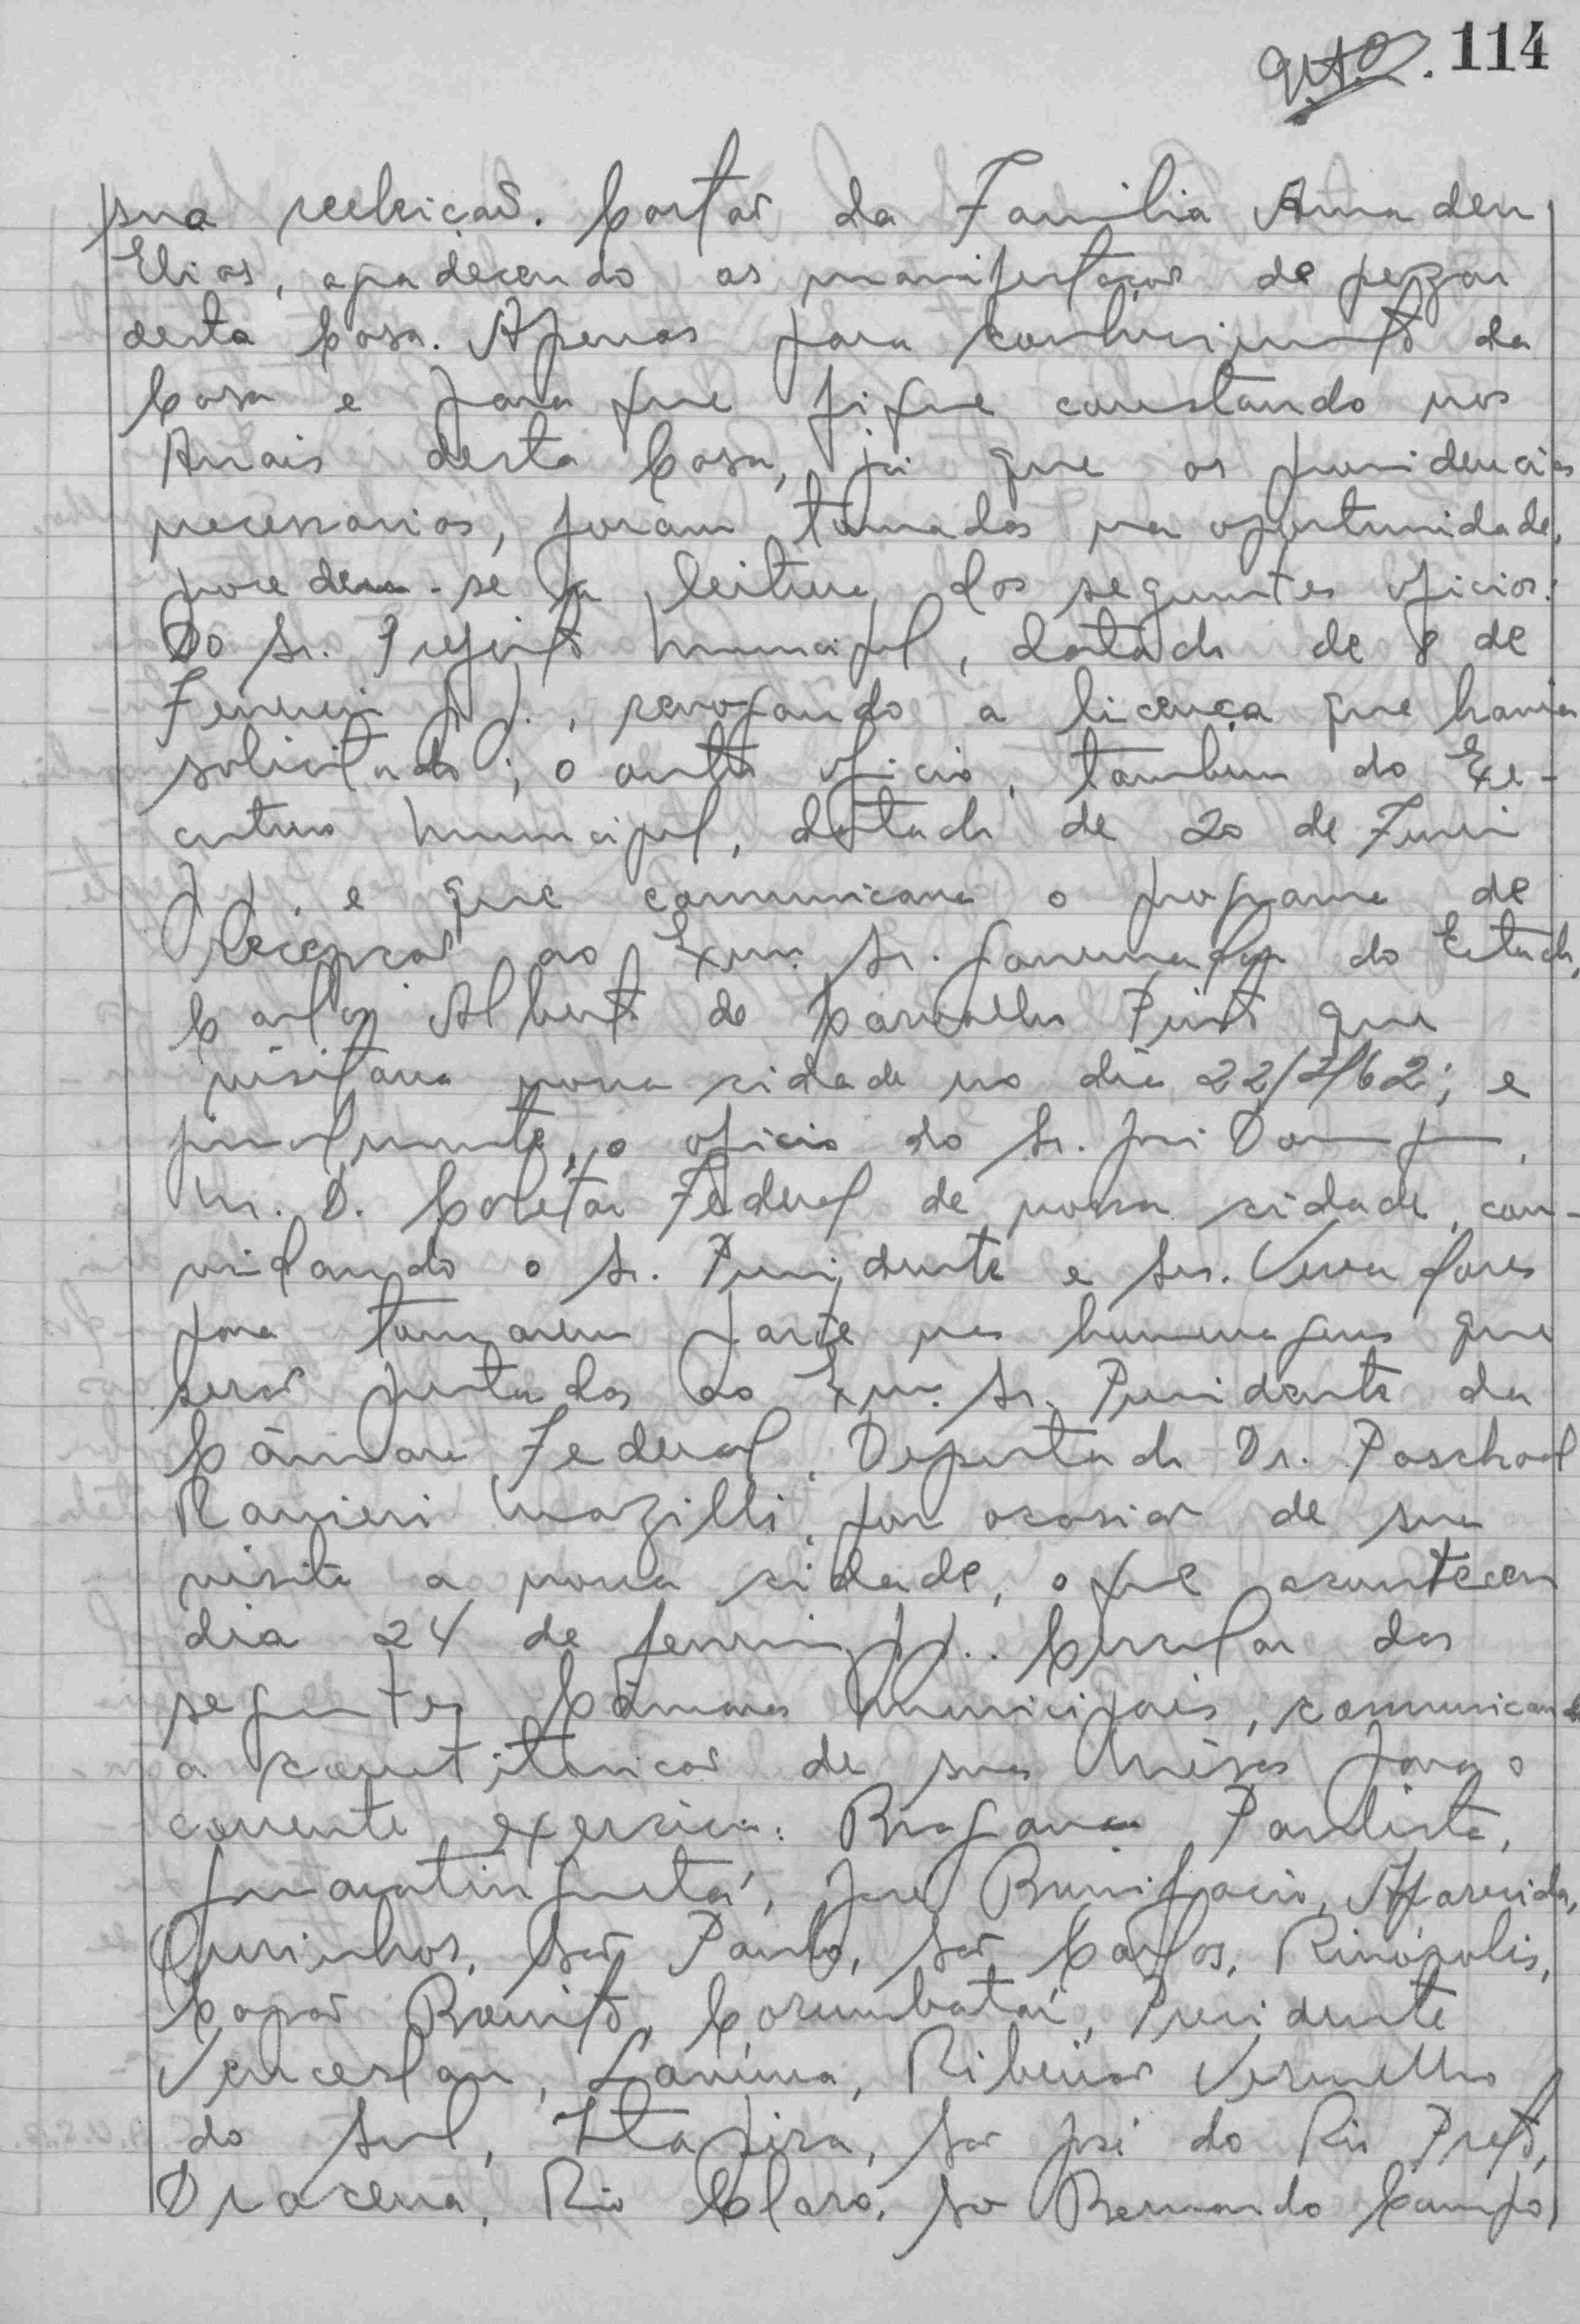 114
sua reeleição. Cartão da Familia Amadeu
Elias, agradecendo as manifestações de pezar
desta Casa. Apenas para conhecimento da
Casa e para que fique constando nos
Anais desta Casa, já que as providencias
necessarias, foram tomadas na oportunidade,
procedeu-se a leitura dos seguintes oficios:
Do Sr. Prefeito Municipal, datado de 8 de
Fevereiro p.p., revogando a licença que havia
solicitado; o outro oficio, tambem do Exe-
cutivo Municipal, datado de 20 de Fevereiro
p.p. e que comunicava o programa de
Recepção ao Exmo. Sr. Governador do Estado,
Carlos Alberto de Carvalho Pinto que
visitava nossa cidade no dia 22/2/62; e
finalmente, o oficio do Sr. José
M. D. Coletor Federal de nossa cidade, con-
vidando o Sr. Presidente e Srs. Vereadores
para tomarem parte nas homenagens que
serão prestadas ao Exmo. Sr. Presidente da
Câmara Federal, Deputado Dr. Paschoal
Ranieri Mazzilli, por ocasião de sua
visita a nossa cidade, o que aconteceu
dia 24 de fevereiro p.p.. Circular das
seguintes Câmaras Municipais, comunicando
a constituição de suas Mêsas para o
corrente exercicio: Bragança Paulista,
Guaratinguetá, José Bonifacio, Aparecida,
Ourinhos, São Paulo, São Carlos, Rinópolis,
Capão Bonito, Corumbataí, Presidente
Venceslau, Lavinia, Ribeirão Vermelho
do Sul, Itapira, São José do Rio Preto,
Dracena, Rio Claro, São Bernardo Campo